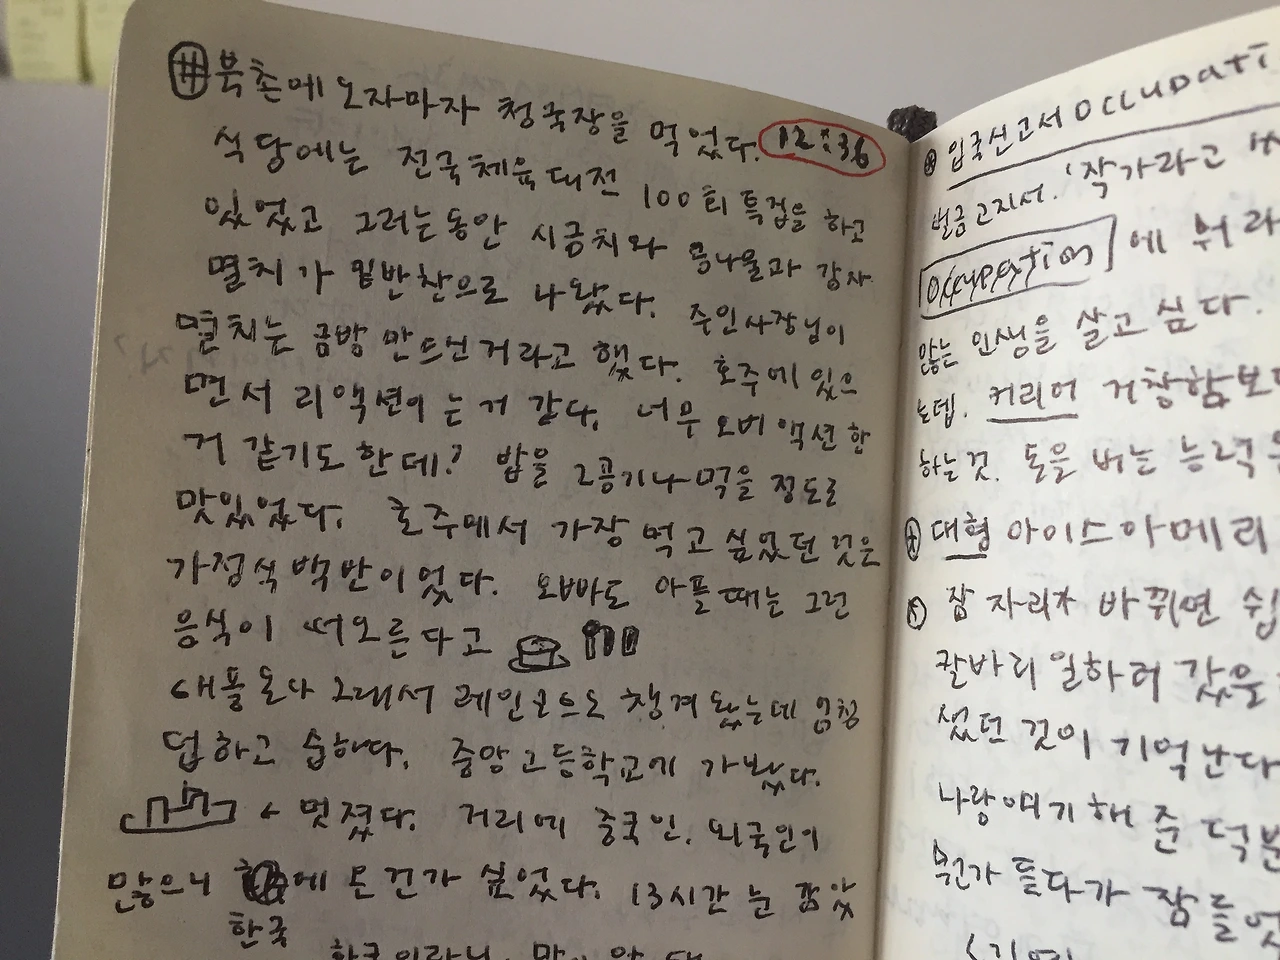 북촌에 오자마자 청국장을 먹었다. 12:36
식당에는 전국체육대전 100회 특집을 하고
있었고 그러는동안 시금치와 콩나물과 감자
멸치가 밑반찬으로 나왔다. 주인사장님이
멸치는 금방 만드신거라고 했다. 호주에 있으
면서 리액션이 는 거 같다. 너무 오버액션 한
거 같기도 한데? 밥을 2공기나 먹을 정도로
맛있었다. 호주에서 가장 먹고 싶었던 것은
가정식 백반이었다. 오빠도 아플 때는 그런
음식이 떠오른다고
그래서 레인코스도 챙겨왔는데 엄청
덥하고 습하다. 중앙고등학교에 가봤다.
← 멋졌다. 거리에 중국인. 외국인이
많으니 에 온건가 싶었다. 13시간 눈 감았
한국
입국신고서 Occupati
벌금고지서. '작가라고
Occupation 에 뭐라
않는 인생을 살고 싶다.
는데. 커리어 거창함보
하는것. 돈을 버는 능력
대형 아이스아메리
잠자리가 바뀌면 쉽
칸바리 일하러 갔을
썼던 것이 기억난다
나랑 얘기해 준 덕분
뭔가 듣다가 잠들었